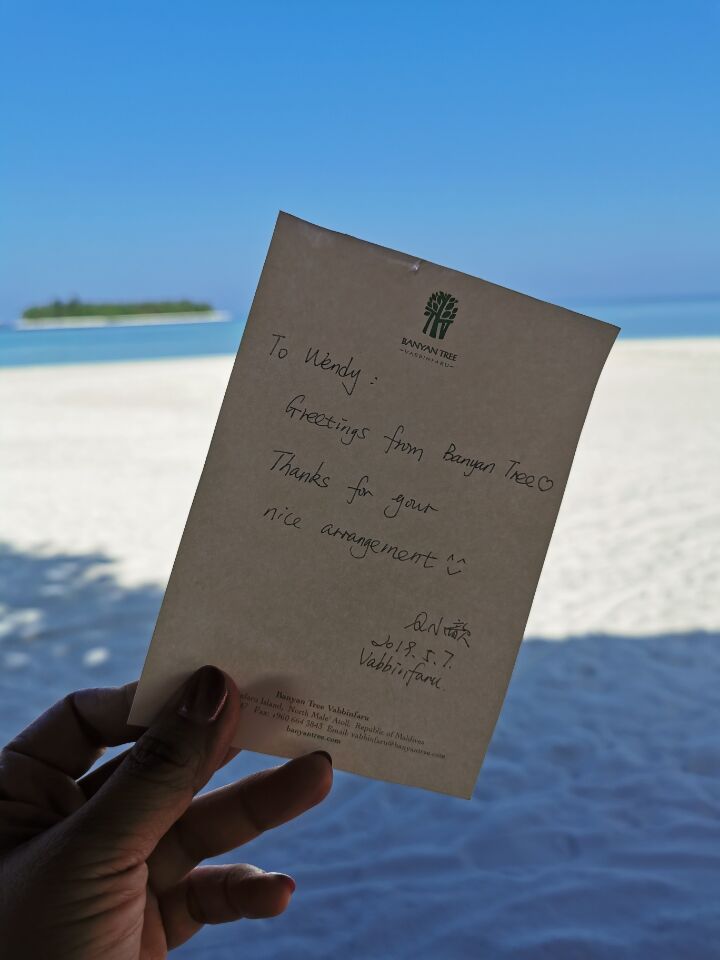 BANYAN TREE
~VABBINFARU~
To Wendy:
Greetings from Banyan Tree♡
Thanks for your
nice arrangement ^^
QN歆
2019.5.7.
Vabbinfaru.
Banyan Tree Vabbinfaru
Island, North Male' Atoll. Republic of Maldives
Fax: +960 664 3843 Email: vabbinfaru@banyantree.com
banyantree.com